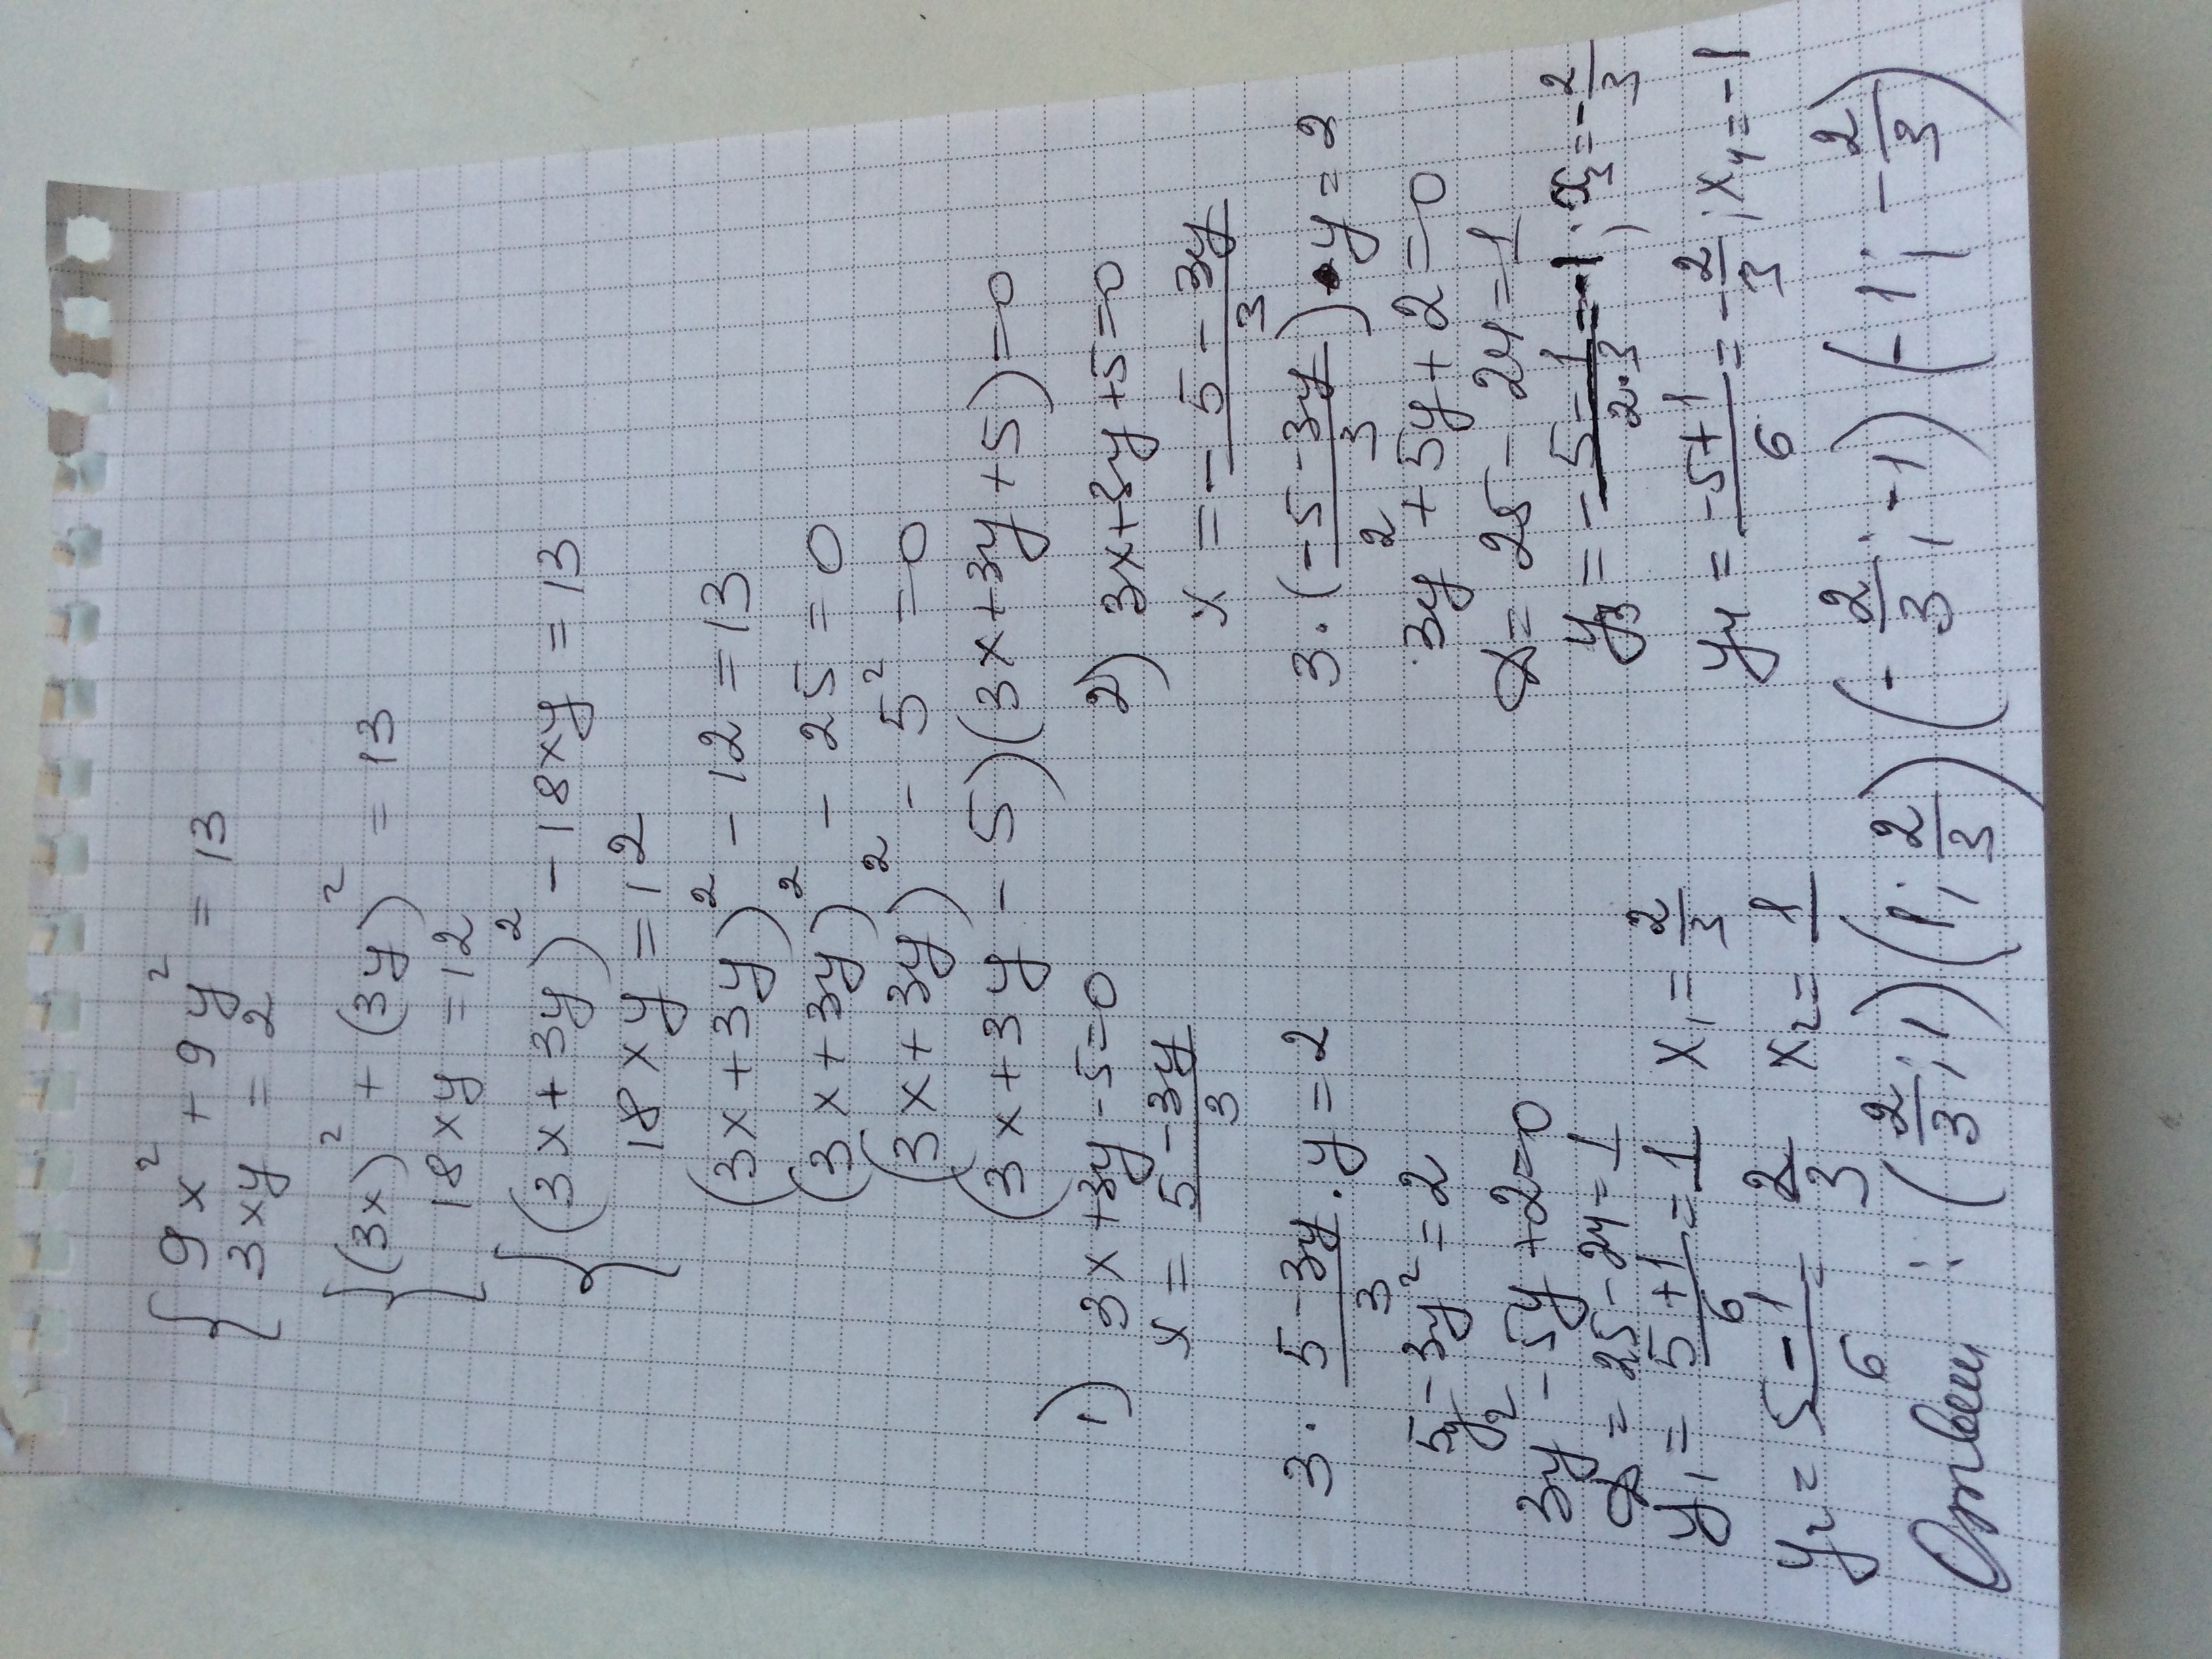 { 9x² + 9y² = 13
3xy = 2
{ (3x)² + (3y)² = 13
18xy = 12
{ (3x + 3y)² - 18xy = 13
18xy = 12
(3x + 3y)² - 12 = 13
(3x + 3y)² - 25 = 0
(3x + 3y)² - 5² = 0
(3x + 3y - 5)(3x + 3y + 5) = 0
1) 3x + 3y - 5 = 0
x = (5 - 3y)/3
3 · (5 - 3y)/3 · y = 2
5y - 3y² = 2
3y² - 5y + 2 = 0
D = 25 - 24 = 1
y₁ = (5 + 1)/6 = 1 x₁ = 2/3
y₂ = (5 - 1)/6 = 2/3 x₂ = 1
2) 3x + 3y + 5 = 0
x = (-5 - 3y)/3
3 · ((-5 - 3y)/3) · y = 2
3y² + 5y + 2 = 0
D = 25 - 24 = 1
y₃ = (-5 - 1)/(2·3) = -1; x₃ = -2/3
y₄ = (-5 + 1)/6 = -2/3; x₄ = -1
Ответ: (2/3; 1) (1; 2/3) (-2/3; -1) (-1; -2/3)